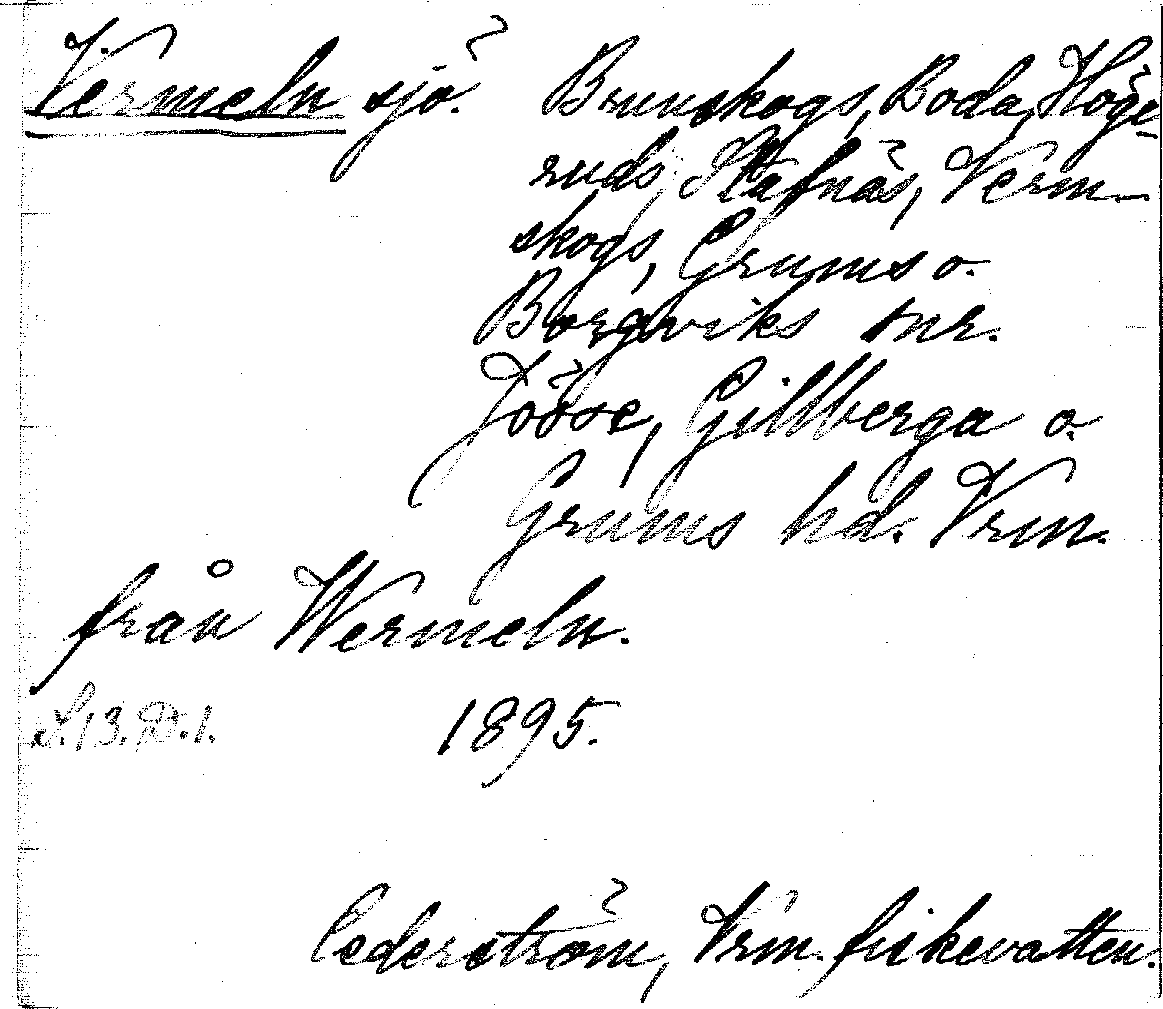 Vermeln sjö. Brunskogs, Boda, Höge-
ruds, Stafnäs, Verm-
skogs, Grums o.
Borgviks snr.
Jösse, Gillberga o.
Grums hd. Vrm.
från Wermeln.
S.13.D.1. 1895.
Cederström, Vrm. fiskevatten.